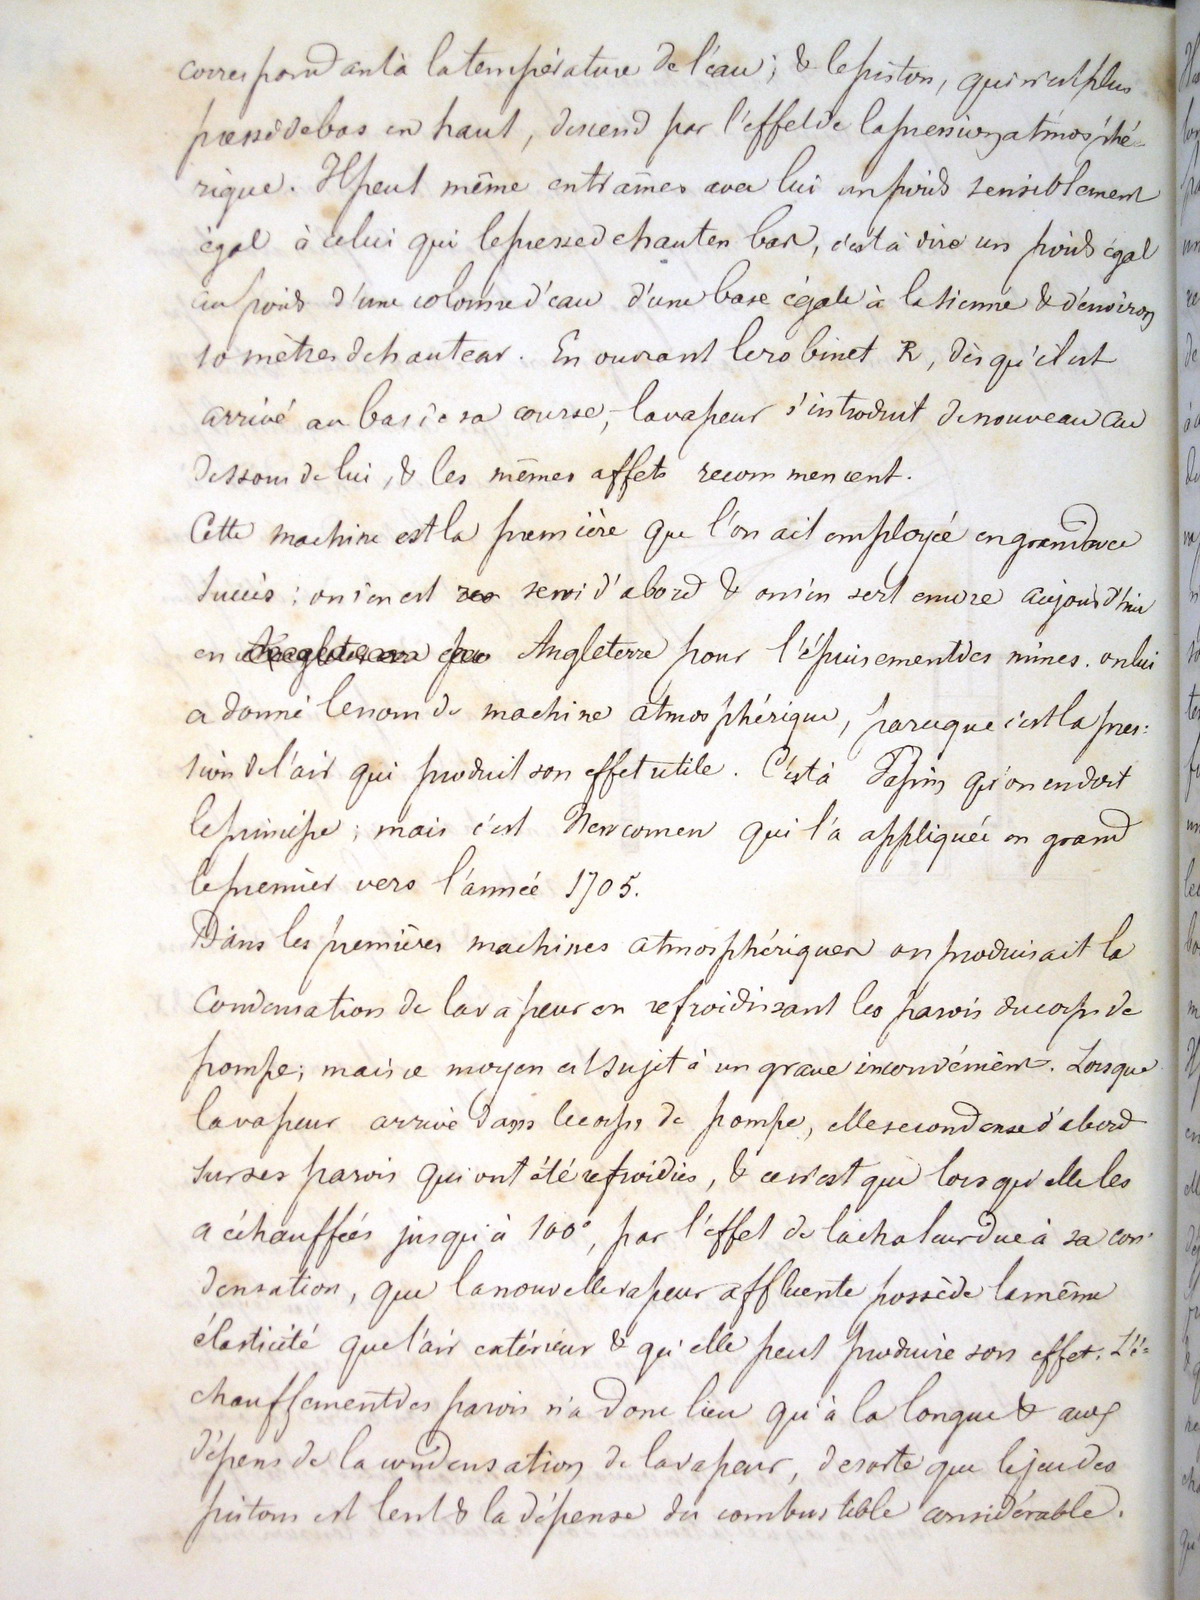 correspondant à la température de l'eau; & le piston, qui n'est plus
pressé de bas en haut, descend par l'effet de la pression atmosphé-
rique. Il peut même entraîner avec lui un poids sensiblement
égal à celui qui le presse de haut en bas, c'est à dire un poids égal
au poids d'une colonne d'eau d'une base égale à la sienne & d'environ
10 mètres de hauteur. En ouvrant le robinet R, dès qu'il est
arrivé au bas de sa course, la vapeur s'introduit de nouveau au
dessous de lui, & les mêmes effets recommencent.
Cette machine est la première que l'on ait employée en grand avec
succès; on s'en est servi d'abord & on s'en sert encore aujourd'hui
en Angleterre pour l'épuisement des mines. on lui
a donné le nom de machine atmosphérique, parceque c'est la pres:
sion de l'air qui produit son effet utile. C'est à Papin qu'on en doit
le principe; mais c'est Newcomen qui l'a appliquée en grand
le premier vers l'année 1705.
Dans les premières machines atmosphériques on produisait la
condensation de la vapeur en refroidissant les parois du corps de
pompe; mais ce moyen est sujet à un grave inconvénient. Lorsque
la vapeur arrive dans le corps de pompe, elle se condense d'abord
sur ses parois qui ont été refroidies, & ce n'est que lorsqu'elle les
a échauffées jusqu'à 100°, par l'effet de la chaleur due à sa con-
densation, que la nouvelle vapeur affluente possède la même
élasticité que l'air extérieur & qu'elle peut produire son effet. L'é=
chauffement des parois n'a donc lieu qu'à la longue & aux
dépens de la condensation de la vapeur, de sorte que le jeu des
pistons est lent & la dépense du combustible considérable.